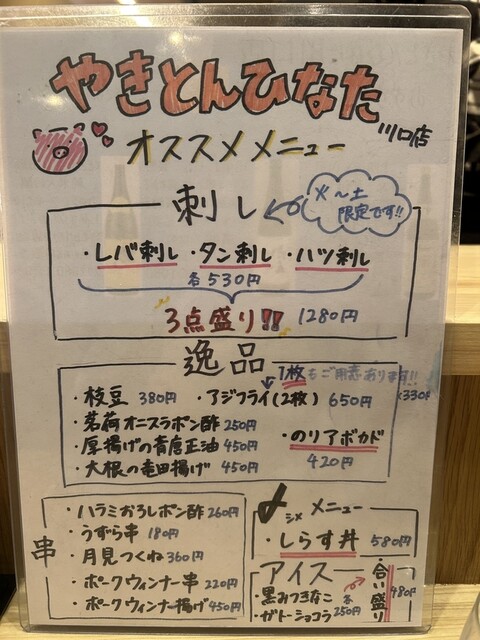 やきとんひなた
川口店
オススメメニュー
刺し
火〜土
限定です!!
・レバ刺し ・タン刺し ・ハツ刺し
各530円
3点盛り!! 1280円
逸品
1枚もご用意あります!!
330円
・枝豆 380円 ・アジフライ(2枚) 650円
・茗荷オニスラポン酢 250円
・厚揚げの青唐正油 450円
・のりアボカド
・大根の竜田揚げ 450円
420円
串
・ハラミおろしポン酢 260円
・うずら串 180円
・月見つくね 360円
・ポークウィンナー串 220円
・ポークウィンナー揚げ 450円
〆 シメ メニュー
・しらす丼 580円
アイス
・黒みつきなこ
・ガトーショコラ
各250円
合い盛り
480円